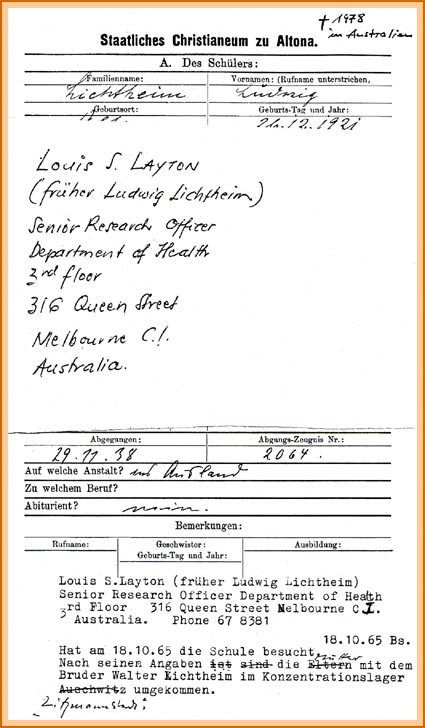 † 1978
in Australien
Staatliches Christianeum zu Altona.
A. Des Schülers:
Familienname:
Vornamen: (Rufname unterstrichen,
Lichtheim
Ludwig
Geburtsort:
Geburts-Tag und Jahr:
12. 1921
Louis S. Layton
(früher Ludwig Lichtheim)
Senior Research Officer
Department of Health
3rd floor
316 Queen Street
Melbourne C.1.
Australia.
Abgegangen:
Abgangs-Zeugnis Nr.:
29. 11. 38
2064.
Auf welche Anstalt? ins Ausland
Zu welchem Beruf?
Abiturient? nein.
Bemerkungen:
Rufname:
Geschwister:
Geburts-Tag und Jahr:
Ausbildung:
Louis S.Layton (früher Ludwig Lichtheim)
Senior Research Officer Department of Health
3rd Floor 316 Queen Street Melbourne C.I.
Australia. Phone 67 8381
18.10.65 Bs.
Hat am 18.10.65 die Schule besucht.
Nach seinen Angaben ist sind die Eltern Mutter mit dem
Bruder Walter Lichtheim im Konzentrationslager
Auschwitz umgekommen.
Litzmannstadt!